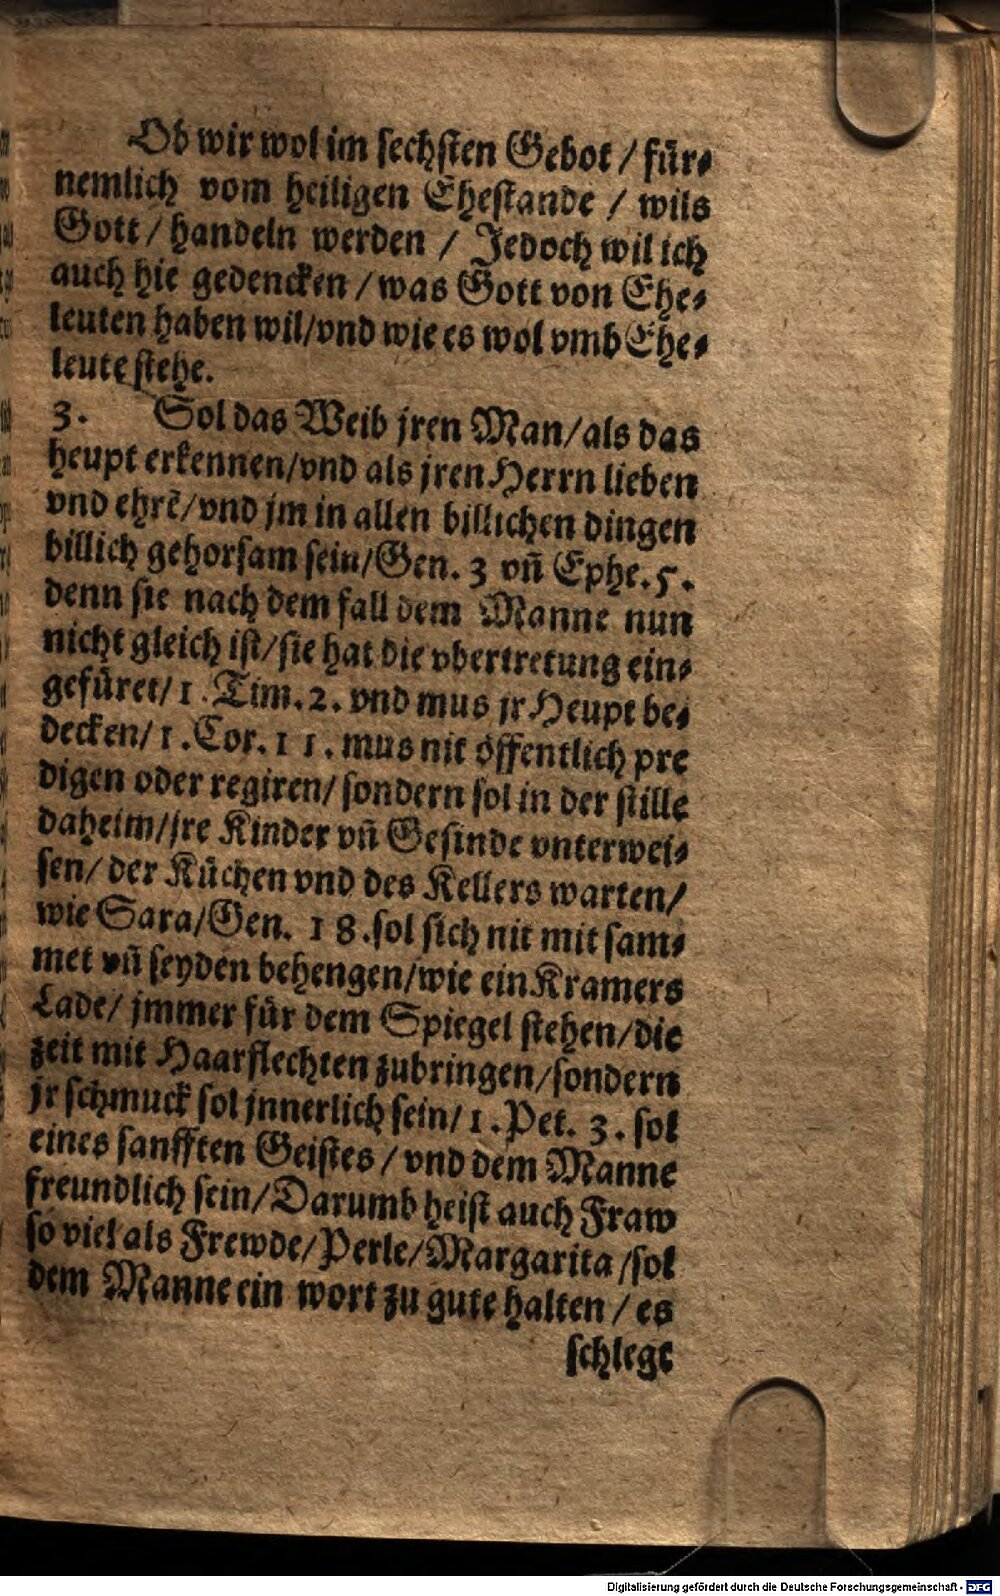 Ob wir wol im sechsten Gebot / für⸗
nemlich vom heiligen Ehestande / wils
Gott / handeln werden / Jedoch wil ich
auch hie gedencken / was Gott von Ehe⸗
leuten haben wil/vnd wie es wol vmb Ehe⸗
leute stehe.
3. Sol das Weib jren Man/als das
heupt erkennen/vnd als jren Herrn lieben
vnd ehrē/vnd jm in allen billichen dingen
billich gehorsam sein/Gen. 3 vñ Ephe. 5.
denn sie nach dem fall dem Manne nun
nicht gleich ist/sie hat die vbertretung ein⸗
gefüret/ 1. Tim. 2. vnd mus jr Heupt be⸗
decken/ 1. Cor. 11. mus nit öffentlich pre
digen oder regiren/ sondern sol in der stille
daheim/jre Kinder vñ Gesinde vnterwei⸗
sen/ der Küchen vnd des Kellers warten/
wie Sara/Gen. 18. sol sich nit mit sam⸗
met vñ seyden behengen/wie ein Kramers
Lade/ jmmer für dem Spiegel stehen/die
zeit mit Haarflechten zubringen/sondern
jr schmuck sol jnnerlich sein/ 1. Pet. 3. sol
eines sanfften Geistes / vnd dem Manne
freundlich sein/Darumb heist auch Fraw
so viel als Frewde/Perle/Margarita /sol
dem Manne ein wort zu gute halten / es
schlegt
Digitalisierung gefördert durch die Deutsche Forschungsgemeinschaft - DFG